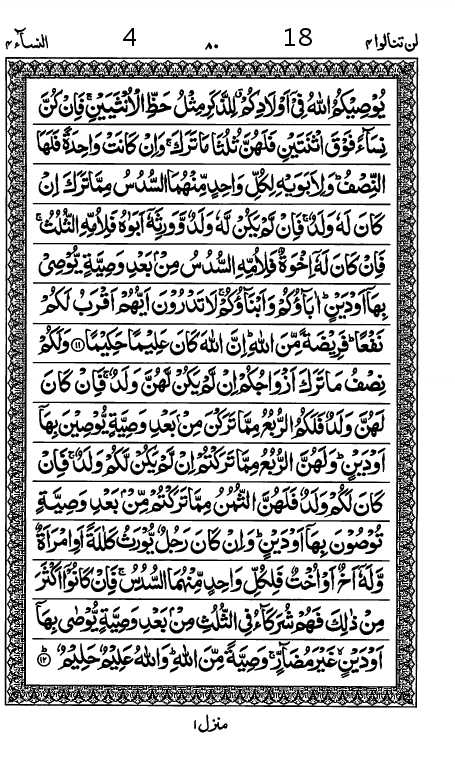 لن تنالوا ۴ 18 ۸۰ 4 النساۤء ۴
يُوۡصِيۡكُمُ اللّٰهُ فِىۡۤ اَوۡلَادِكُمۡ‌ۖ لِلذَّكَرِ مِثۡلُ حَظِّ الۡاُنۡثَيَيۡنِ‌ۚ فَاِنۡ كُنَّ
نِسَآءً فَوۡقَ اثۡنَتَيۡنِ فَلَهُنَّ ثُلُثَا مَا تَرَكَ‌ۚ وَاِنۡ كَانَتۡ وَاحِدَةً فَلَهَا
النِّصۡفُ‌ؕ وَلِاَبَوَيۡهِ لِكُلِّ وَاحِدٍ مِّنۡهُمَا السُّدُسُ مِمَّا تَرَكَ اِنۡ
كَانَ لَهٗ وَلَدٌ‌ۚ فَاِنۡ لَّمۡ يَكُنۡ لَّهٗ وَلَدٌ وَّوَرِثَهٗۤ اَبَوٰهُ فَلِاُمِّهِ الثُّلُثُ‌ۚ
فَاِنۡ كَانَ لَهٗۤ اِخۡوَةٌ فَلِاُمِّهِ السُّدُسُ مِنۡۢ بَعۡدِ وَصِيَّةٍ يُّوۡصِىۡ
بِهَاۤ اَوۡ دَيۡنٍ‌ؕ اٰبَآؤُكُمۡ وَاَبۡنَآؤُكُمۡ‌ۚ لَا تَدۡرُوۡنَ اَيُّهُمۡ اَقۡرَبُ لَكُمۡ
نَفۡعًا‌ؕ فَرِيۡضَةً مِّنَ اللّٰهِ‌ؕ اِنَّ اللّٰهَ كَانَ عَلِيۡمًا حَكِيۡمًا‏ ﴿۱۱﴾ وَلَكُمۡ
نِصۡفُ مَا تَرَكَ اَزۡوَاجُكُمۡ اِنۡ لَّمۡ يَكُنۡ لَّهُنَّ وَلَدٌ‌ۚ فَاِنۡ كَانَ
لَهُنَّ وَلَدٌ فَلَكُمُ الرُّبُعُ مِمَّا تَرَكۡنَ مِنۡۢ بَعۡدِ وَصِيَّةٍ يُّوۡصِيۡنَ بِهَاۤ
اَوۡ دَيۡنٍ‌ؕ وَلَهُنَّ الرُّبُعُ مِمَّا تَرَكۡتُمۡ اِنۡ لَّمۡ يَكُنۡ لَّكُمۡ وَلَدٌ‌ۚ فَاِنۡ
كَانَ لَكُمۡ وَلَدٌ فَلَهُنَّ الثُّمُنُ مِمَّا تَرَكۡتُمۡ مِّنۡۢ بَعۡدِ وَصِيَّةٍ
تُوۡصُوۡنَ بِهَاۤ اَوۡ دَيۡنٍ‌ؕ وَاِنۡ كَانَ رَجُلٌ يُّوۡرَثُ كَلٰلَةً اَوِ امۡرَاَةٌ
وَّلَهٗۤ اَخٌ اَوۡ اُخۡتٌ فَلِكُلِّ وَاحِدٍ مِّنۡهُمَا السُّدُسُ‌ۚ فَاِنۡ كَانُوۡۤا اَكۡثَرَ
مِنۡ ذٰلِكَ فَهُمۡ شُرَكَآءُ فِى الثُّلُثِ مِنۡۢ بَعۡدِ وَصِيَّةٍ يُّوۡصٰى بِهَاۤ
اَوۡ دَيۡنٍۙ غَيۡرَ مُضَآرٍّ‌ۚ وَصِيَّةً مِّنَ اللّٰهِ‌ؕ وَاللّٰهُ عَلِيۡمٌ حَلِيۡمٌؕ‏ ﴿۱۲﴾
منزل ۱